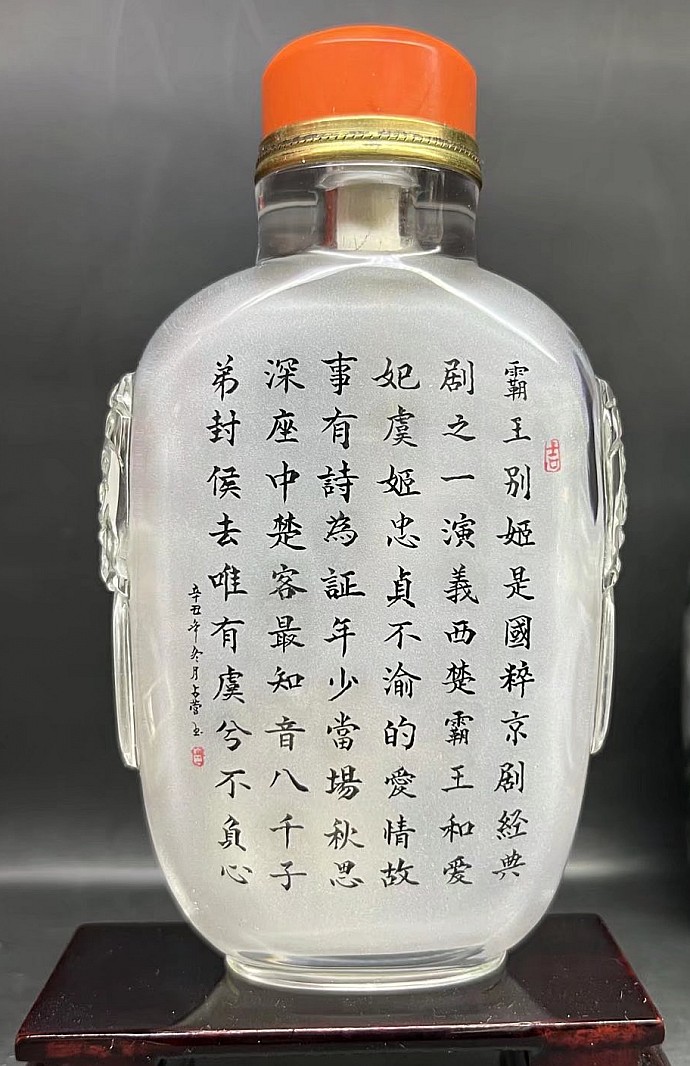 霸王别姬是國粹京剧經典
剧之一演義西楚霸王和爱
妃虞姬忠貞不渝的愛情故
事有詩為証年少當場秋思
深座中楚客最知音八千子
弟封侯去唯有虞兮不負心
辛丑年冬月
吉